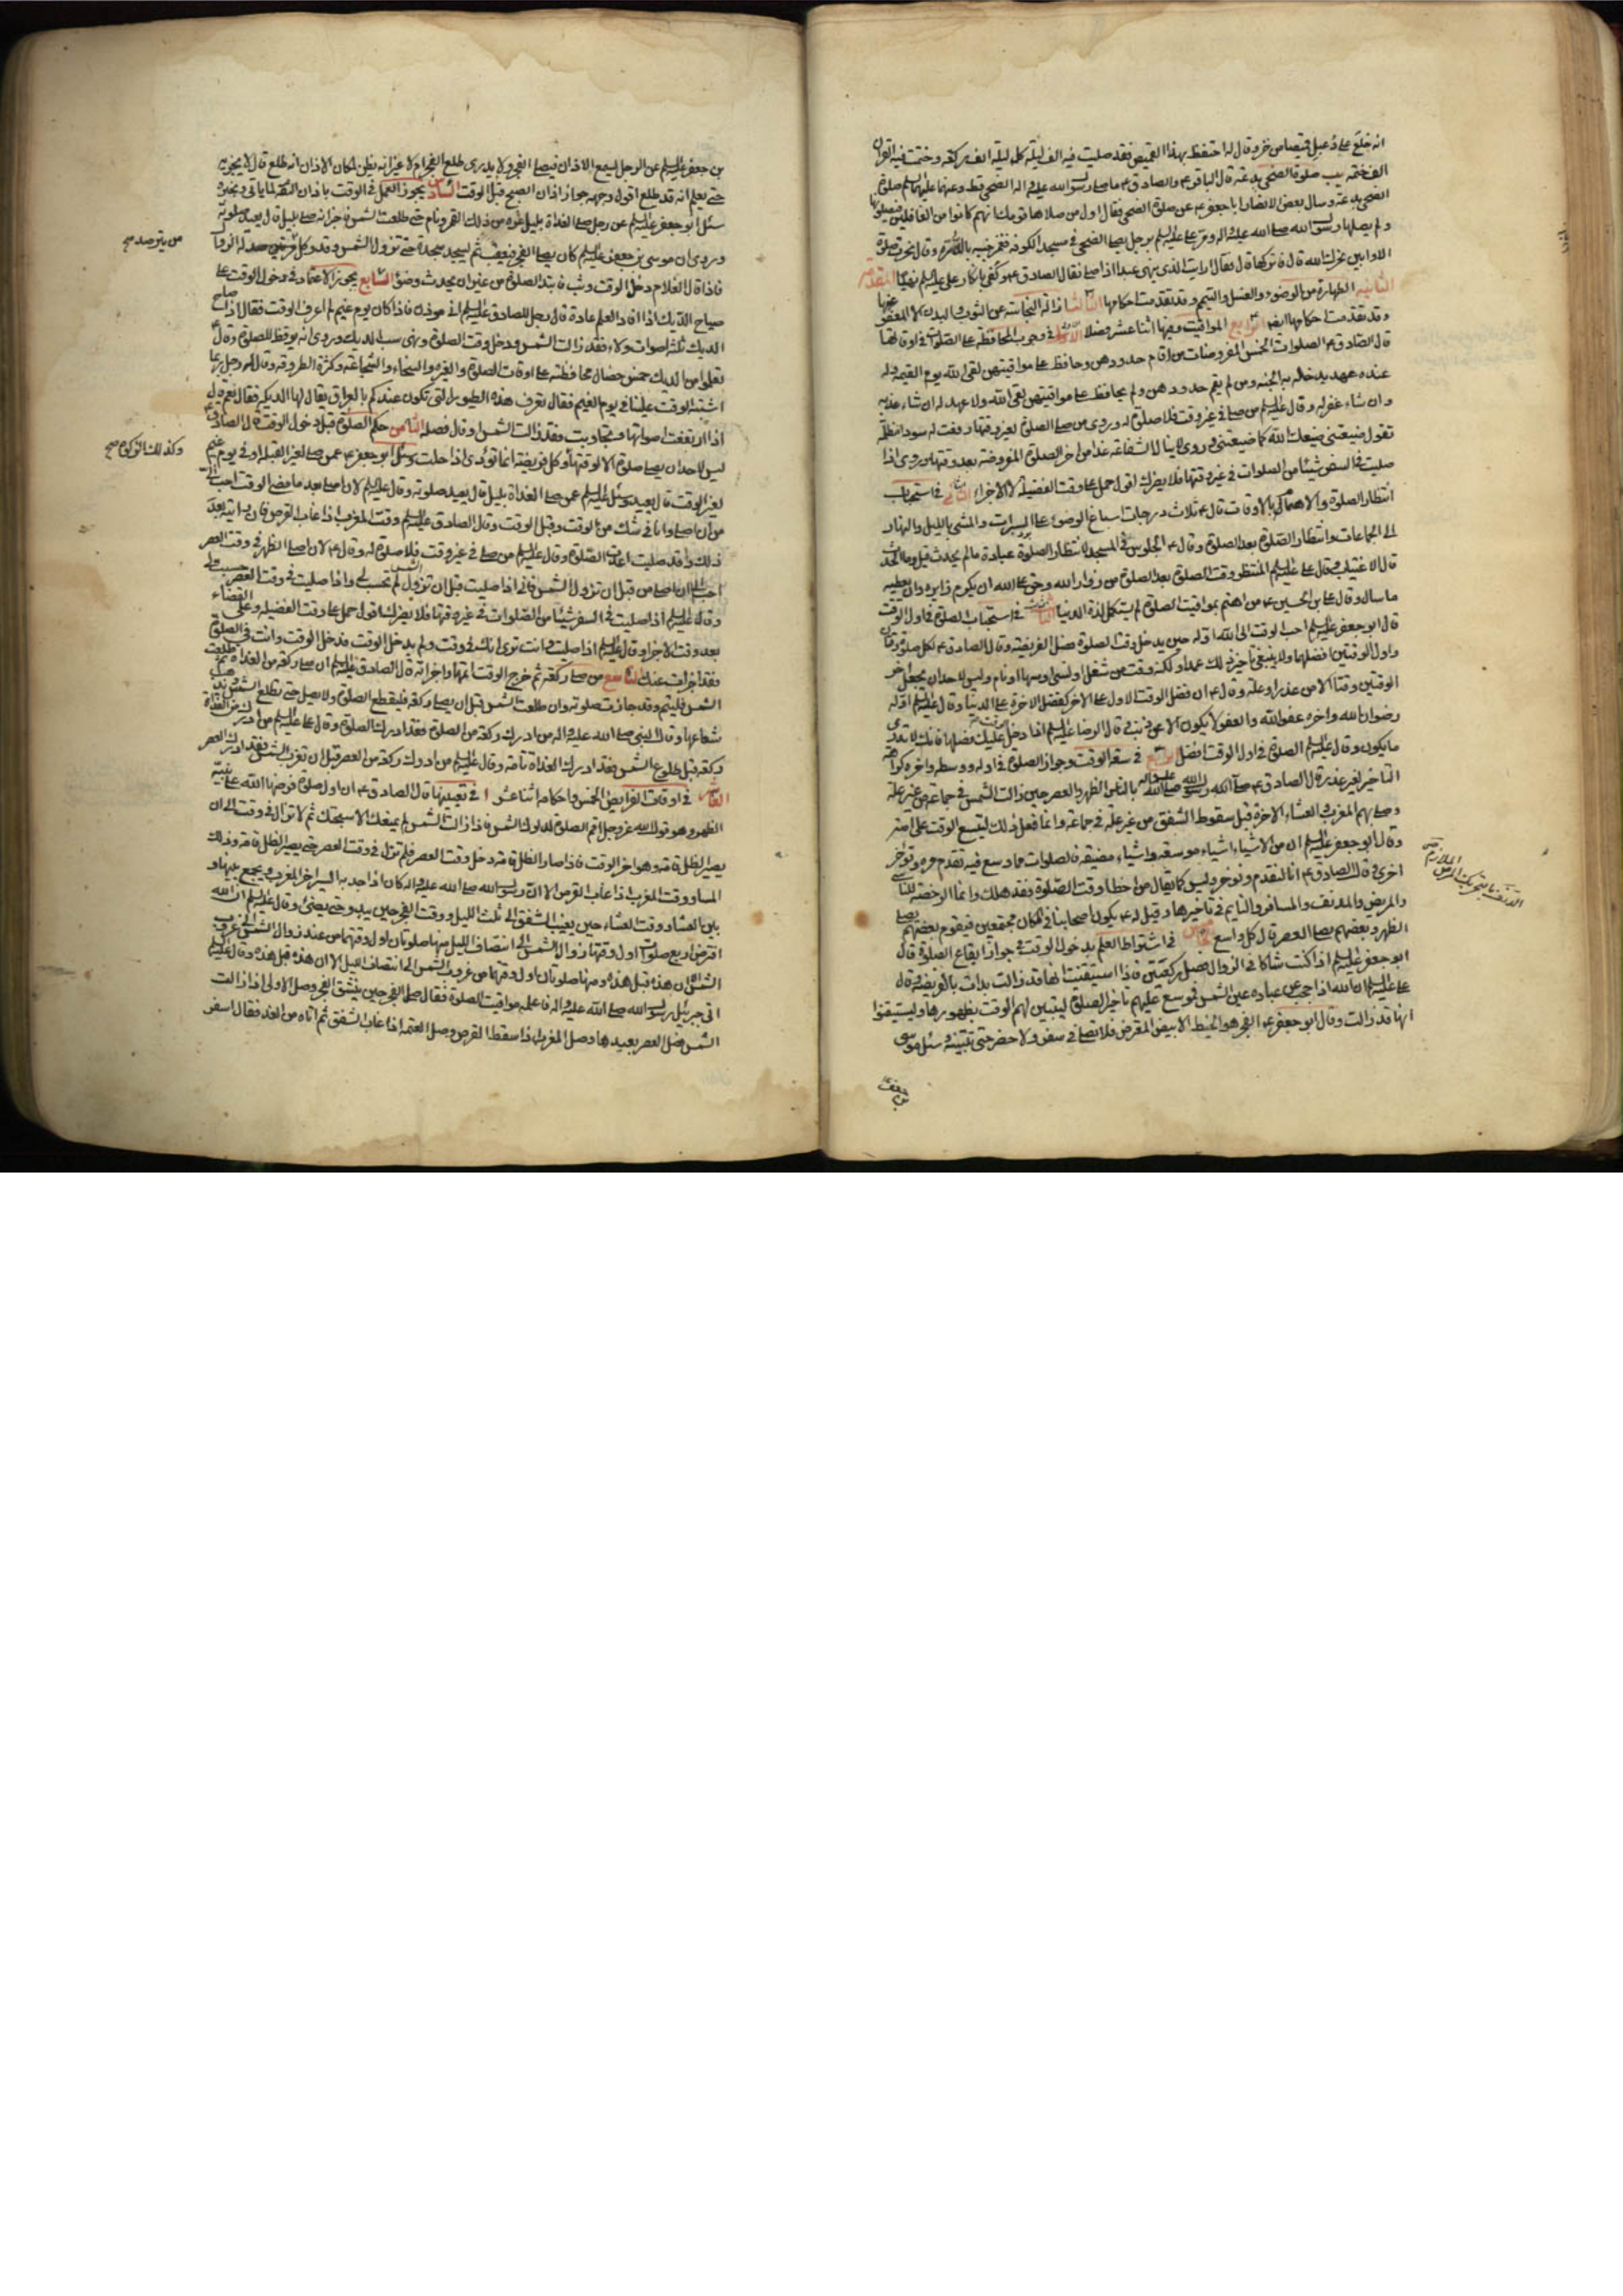 انه خلع على دعبل قميصا من خز وقال له احتفظ بهذا القميص فقد صليت فيه الف ليلة كل ليلة الف ركعة وختمت فيه القران
الف ختمة يب صلوة الضحى بدعة قال الباقر ع والصادق ع ما صلى رسول الله صلى الله عليه واله الضحى قط وعنهما عليهما السلم صلوة
الضحى بدعة وسال بعض الانصار ابا جعفر ع عن صلوة الضحى فقال اول من صلاها قومك انهم كانوا من الغافلين فيصلونها
ولم يصلها رسول الله صلى الله عليه واله ومر على عليه السلم برجل يصلى الضحى في مسجد الكوفة فغمز جنبه بالدرة وقال نحرت صلوة
الاوابين نحرك الله قال فاتركها قال فقال ارايت الذى ينهى عبدا اذا صلى فقال الصادق ع وكفى بانكار على عليه السلم نهيا المقدمة
الثانية الطهارة من الوضوء والغسل والتيمم وقد تقدمت احكامها الثالثة ازالة النجاسة عن الثوب والبدن الا المعفو عنها
وقد تقدمت احكامها ايضا الرابع المواقيت وفيها اثنا عشر فصلا الاول في وجوب المحافظة على الصلوات في اوقاتها
قال الصادق ع الصلوات الخمس المفروضات من اقام حدودهن وحافظ على مواقيتهن لقى الله يوم القيمة وله
عنده عهد يدخله به الجنة ومن لم يقم حدودهن ولم يحافظ على مواقيتهن لقى الله ولا عهد له ان شاء عذبه
وان شاء غفر له وقال عليه السلم من صلى في غير وقت فلا صلوة له وروى من صلى الصلوة لغير وقتها رفعت له سودا مظلمة
تقول ضيعتنى ضيعك الله كما ضيعتنى وروى لا ينال الشفاعة غدا من اخر الصلوة المفروضة بعد وقتها وروى اذا
صليت في السفر شيئا من الصلوات في غير وقتها فلا يضرك اقول حمل على وقت الفضيلة لا الاجزاء الثانى في استحباب
انتظار الصلوة والاهتمام بالاوقات قال ع ثلاث درجات اسباغ الوضوء على السبرات والمشى بالليل والنهار
الى الجماعات وانتظار الصلوة بعد الصلوة وقال ع الجلوس في المسجد لانتظار الصلوة عبادة ما لم يحدث قيل وما الحدث
قال الاغتياب وقال على عليه السلم المنتظر وقت الصلوة بعد الصلوة من زوار الله وحق على الله ان يكرم زايره وان يعطيه
ما سال وقال على بن الحسين ع من اهتم بمواقيت الصلوة لم يستكمل لذة الدنيا الثالث في استحباب الصلوة في اول الوقت
قال ابو جعفر عليه السلم احب الوقت الى الله اوله حين يدخل وقت الصلوة فصل الفريضة وقال الصادق ع لكل صلوة وقتان
واول الوقتين افضلهما ولا ينبغى تاخير ذلك عمدا ولكنه وقت من شغل او نسى او سها او نام وليس لاحد ان يجعل اخر
الوقتين وقتا الا من عذر او علة وقال ع ان فضل الوقت الاول على الاخر كفضل الاخرة على الدنيا وقال عليه السلم اوله
رضوان الله واخره عفو الله والعفو لا يكون الا عن ذنب وقال الرضا عليه السلم اذا دخل عليك وقت فصلها فانك لا تدرى
ما يكون وقال عليه السلم الصلوة في اول الوقت افضل الرابع في سعة الوقت وجواز الصلوة في اوله ووسطه واخره وكراهة
التاخير لغير عذر قال الصادق ع صلى رسول الله صلى الله عليه واله بالناس الظهر والعصر حين زالت الشمس في جماعة من غير علة
وصلى بهم المغرب والعشاء الاخرة قبل سقوط الشفق من غير علة في جماعة وانما فعل ذلك ليتسع الوقت على امته
وقال ابو جعفر عليه السلم ان من الاشياء اشياء موسعة واشياء مضيقة فالصلوات مما وسع فيه تقدم مرة وتؤخر
اخرى وقال الصادق ع انا لنقدم ونؤخر وليس كما يقال من اخطا وقت الصلوة فقد هلك وانما الرخصة للناسى
والمريض والمدنف والمسافر والنايم في تاخيرها وقيل له ع يكون اصحابنا في المكان مجتمعين فيقوم بعضهم يصلى
الظهر وبعضهم يصلى العصر قال كل واسع الخامس في اشتراط العلم بدخول الوقت في جواز ايقاع الصلوة قال
ابو جعفر عليه السلم اذا كنت شاكا في الزوال فصل ركعتين فاذا استيقنت انها قد زالت بدات بالفريضة وقال
على عليه السلم ان الله اذا حجب عن عباده عين الشمس فوسع عليهم تاخير الصلوة ليتبين لهم الوقت بظهورها وليستيقنوا
انها قد زالت وقال ابو جعفر ع الفجر هو الخيط الابيض المعترض فلا تصل في سفر ولا حضر حتى تتبينه وسئل موسى
بن جعفر
بن جعفر عليه السلم عن الرجل يسمع الاذان فيصلى الفجر ولا يدرى طلع الفجر ام لا غير انه يظن لمكان الاذان انه طلع قال لا يجزيه
حتى يعلم انه قد طلع اقول وجهه جواز اذان الصبح قبل الوقت السادس يجوز العمل في الوقت باذان الثقة لما ياتى ونحوه
سئل ابو جعفر عليه السلم عن رجل صلى الغداة بليل غره من ذلك القمر ونام حتى طلعت الشمس فاخبر انه صلى بليل قال يعيد صلوته
وروى ان موسى بن جعفر عليه السلم كان يصلى الفجر فيعقب ثم يسجد سجدة حتى تزول الشمس وقد وكل
من يترصد صح
فاذا قال الغلام دخل الوقت وثب فابتدا الصلوة من غير ان يحدث وضوء السابع يجوز الاعتماد في دخول الوقت على
صياح الديك اذا افاد العلم عادة قال رجل للصادق عليه السلم انى مؤذن فاذا كان يوم غيم لم اعرف الوقت فقال اذا صاح
الديك ثلثة اصوات ولاء فقد زالت الشمس ودخل وقت الصلوة ونهى عن سب الديك وروى انه يوقظ للصلوة وقال ع
تعلموا من الديك خمس خصال محافظته على اوقات الصلوة والغيرة والسخاء والشجاعة وكثرة الطروقة وقال له رجل ربما
اشتبه الوقت علينا في يوم الغيم فقال تعرف هذه الطيور التى تكون عندكم بالعراق يقال لها الديكة فقال نعم قال
اذا ارتفعت اصواتها وتجاوبت فقد زالت الشمس او قال فصله الثامن حكم الصلوة قبل دخول الوقت قال الصادق ع
ليس لاحد ان يصلى صلوة الا لوقتها وكل فريضة انما تؤدى اذا حلت وسئل ابو جعفر ع عمن صلى لغير القبلة او في يوم غيم
وكذلك الزكوة صح
لغير الوقت قال يعيد وسئل عليه السلم عمن صلى الغداة بليل قال يعيد صلوته وقال عليه السلم لان اصلى بعد ما مضى الوقت احب الى
من ان اصلى وانا في شك من الوقت وقبل الوقت وقال الصادق عليه السلم وقت المغرب اذا غاب القرص فان رايته بعد
ذلك وقد صليت اعدت الصلوة وقال عليه السلم من صلى في غير وقت فلا صلوة له وقال ع لان اصلى الظهر في وقت العصر
احب الى من ان اصلى من قبل ان تزول الشمس فانى اذا صليت قبل ان تزول الشمس لم تحسب لى واذا صليت في وقت العصر حسبت لى
وقال عليه السلم اذا صليت في السفر شيئا من الصلوات في غير وقتها فلا يضرك اقول حمل على وقت الفضيلة وعلى القضاء
بعد وقت الاجزا وقال عليه السلم اذا صليت وانت ترى انك في وقت ولم يدخل الوقت فدخل الوقت وانت في الصلوة
فقد اجزات عنك التاسع من صلى ركعة ثم خرج الوقت اتمها واجزاته قال الصادق عليه السلم ان صلى ركعة من الغداة ثم طلعت
الشمس فليتم وقد جازت صلوته وان طلعت الشمس قبل ان يصلى ركعة فليقطع الصلوة ولا يصل حتى تطلع الشمس ويذهب
شعاعها وقال النبى صلى الله عليه واله من ادرك ركعة من الصلوة فقد ادرك الصلوة وقال على عليه السلم من ادرك من الغداة
ركعة قبل طلوع الشمس فقد ادرك الغداة تامة وقال عليه السلم من ادرك ركعة من العصر قبل ان تغرب الشمس فقد ادرك العصر
العاشر في اوقات الفرايض الخمس واحكامها اثنا عشر ا في تعيينها قال الصادق ع ان اول صلوة فرضها الله على نبيه
الظهر وهو قول الله عز وجل اقم الصلوة لدلوك الشمس فاذا زالت الشمس لم يمنعك الا سبحتك ثم لا تزال في وقت الى ان
يصير الظل قامة وهو اخر الوقت فاذا صار الظل قامة دخل وقت العصر فلم تزل في وقت العصر حتى يصير الظل قامتين وذلك
المسا ووقت المغرب اذا غاب القرص الا ان رسول الله صلى الله عليه واله كان اذا جد به السير اخر المغرب ويجمع بينها و
بين العشاء ووقت العشاء حين يغيب الشفق الى ثلث الليل ووقت الفجر حين يبدو حتى يضىء وقال عليه السلم ان الله
افترض اربع صلوات اول وقتها زوال الشمس الى انتصاف الليل منها صلوتان اول وقتهما من عند زوال الشمس الى غروب
الشمس الا ان هذه قبل هذه ومنها صلوتان اول وقتهما من غروب الشمس الى انتصاف الليل الا ان هذه قبل هذه وقال عليه السلم
اتى جبرئيل رسول الله صلى الله عليه واله فاعلمه مواقيت الصلوة فقال صل الفجر حين ينشق الفجر وصل الاولى اذا زالت
الشمس وصل العصر بعيدها وصل المغرب اذا سقط القرص وصل العتمة اذا غاب الشفق ثم اتاه من الغد فقال اسفر